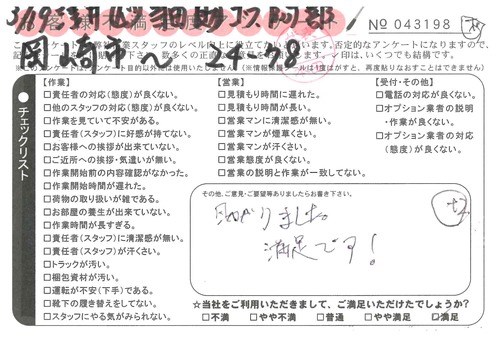 № 043198
岡崎市へ 24-98
チェックリスト
【作業】
□責任者の対応(態度)が良くない。
□他のスタッフの対応(態度)が良くない。
□作業を見ていて不安がある。
□責任者(スタッフ)に好感が持てない。
□お客様への挨拶が出来ていない。
□ご近所への挨拶・気遣いが無い。
□作業開始前の内容確認がなかった。
□作業開始時間が遅れた。
□荷物の取り扱いが雑である。
□お部屋の養生が出来ていない。
□作業時間が長すぎる。
□責任者(スタッフ)に清潔感が無い。
□責任者(スタッフ)が汗くさい。
□トラックが汚い。
□梱包資材が汚い。
□運転が不安(下手)である。
□靴下の履き替えをしてない。
□スタッフにやる気がみられない。
【営業】
□見積もり時間に遅れた。
□見積もり時間が長い。
□営業マンに清潔感が無い。
□営業マンが煙草くさい。
□営業マンが汗くさい。
□営業態度が良くない。
□営業の説明と作業が一致してない。
【受付・その他】
□電話の対応が良くない。
□オプション業者の説明
・作業が良くない。
□オプション業者の対応
(態度)が良くない。
その他、ご意見・ご要望等ありましたらお書き下さい。
助かりました。
満足です!
☆当社をご利用いただきまして、ご満足いただけたでしょうか?
□不満 □やや不満 □普通 □やや満足 ☑満足